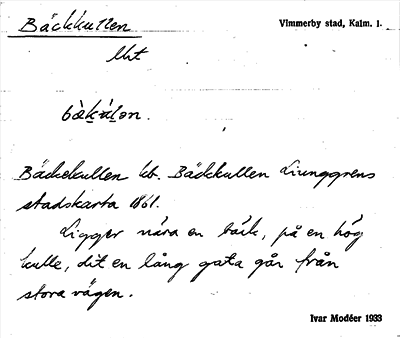 Bäckkullen Vimmerby stad, Kalm. l.
Bäckekullen kb. Bäckkullen Ljunggrens
stadskarta 1861.
Ligger nära en bäck, på en hög
kulle, dit en lång gata går från
stora vägen.
Ivar Modéer 1933